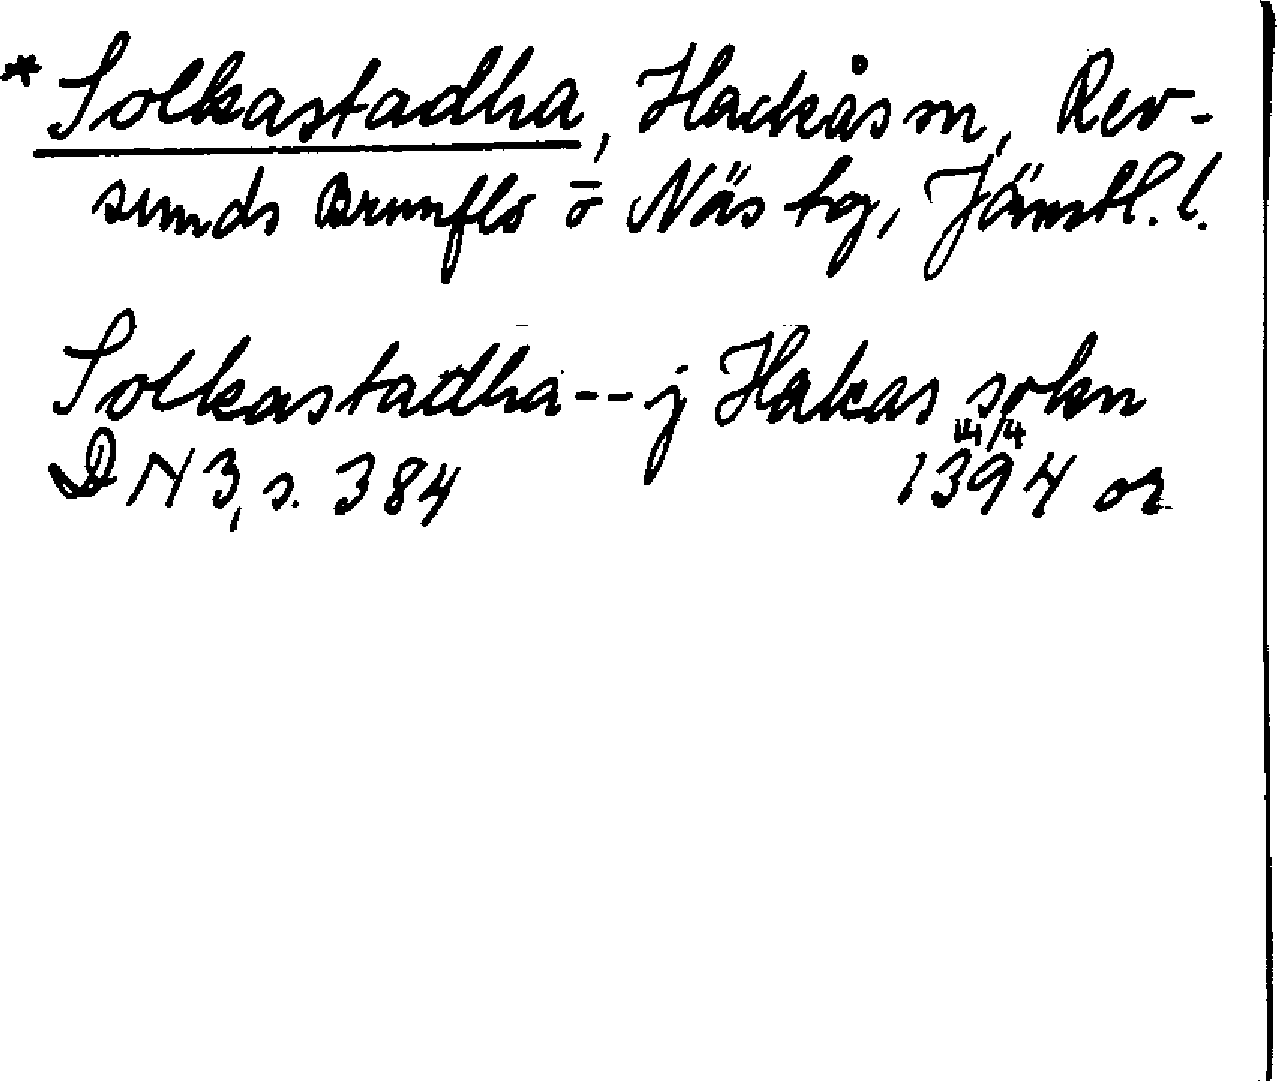 * Solkastadha, Hackås sn, Rev-
sunds Brunflo o Näs tg, Jämtl. l.
Solkastadha -- j Hakas sokn
14/4
DN 3, s. 384 1394 or